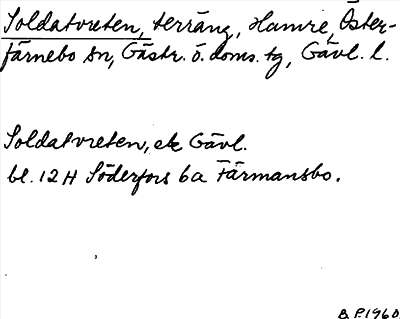 Soldatvreten, terräng, Hamre, Öster-
färnebo sn, Gästr. ö. doms. tg, Gävl. l.
Soldatvreten, ek Gävl.
bl. 12 H Söderfors 6a Färmansbo.
B.P. 1960